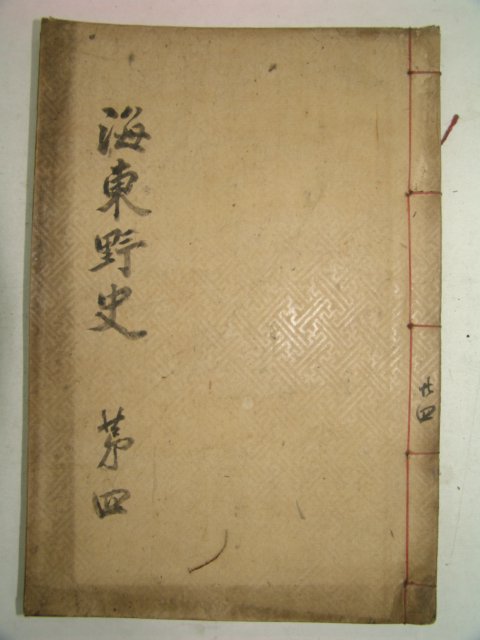 海東野史 第四
共四